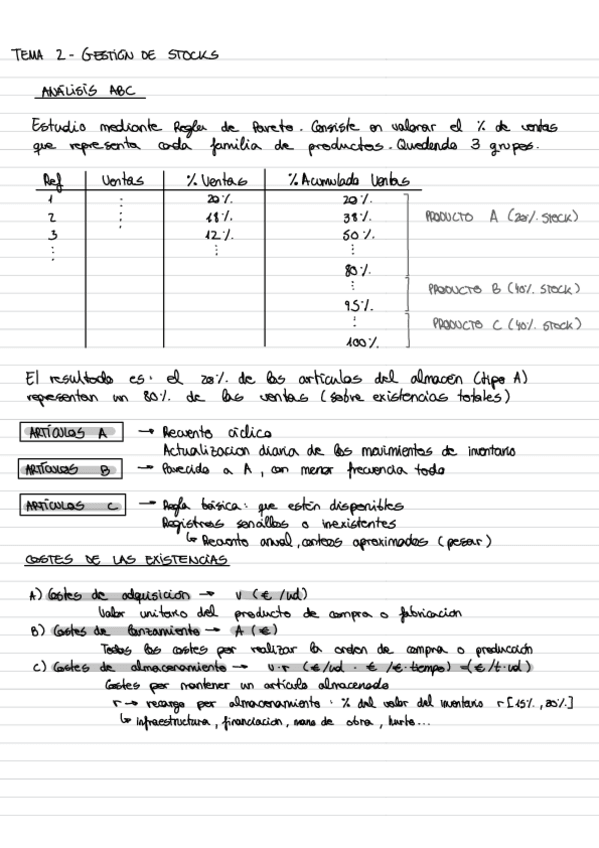 TEMA 2 - GESTIÓN DE STOCKS
ANÁLISIS ABC
Estudio mediante Regla de Pareto. Consiste en valorar el % de ventas
que representa cada familia de productos. Quedando 3 grupos.
Ref Ventas % Ventas % Acumulado Ventas
1 ⋮ 20%. 20%.
2 ⋮ 18%. 38%. PRODUCTO A (20%. STOCK)
3 12%. 50%.
⋮ ⋮ ⋮
80%.
⋮ PRODUCTO B (40%. STOCK)
95%.
⋮ PRODUCTO C (40%. STOCK)
100%.
El resultado es: el 20%. de los artículos del almacén (tipo A)
representan un 80%. de las ventas (sobre existencias totales)
ARTÍCULOS A → Recuento cíclico
Actualización diaria de los movimientos de inventario
ARTÍCULOS B → Parecido a A, con menor frecuencia todo
ARTÍCULOS C → Regla básica: que estén disponibles
Registros sencillos o inexistentes
↳ Recuento anual, conteos aproximados (pesar)
COSTES DE LAS EXISTENCIAS
A) Costes de adquisición → v (€/ud)
Valor unitario del producto de compra o fabricación
B) Costes de lanzamiento → A (€)
Todos los costes por realizar la orden de compra o producción
C) Costes de almacenamiento → v·r (€/ud · €/€·tiempo) = (€/t·ud)
Costes por mantener un artículo almacenado
r → recargo por almacenamiento: % del valor del inventario r [15%., 30%.]
↳ infraestructura, financiación, mano de obra, hurto...